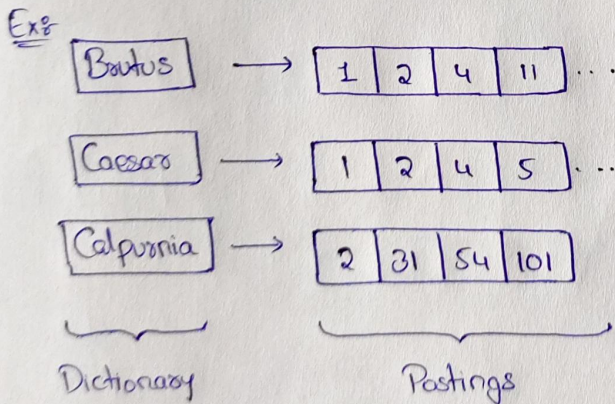 Ex:
Brutus → 1 2 4 11 ...
Caesar → 1 2 4 5 ...
Calpurnia → 2 31 54 101
Dictionary Postings